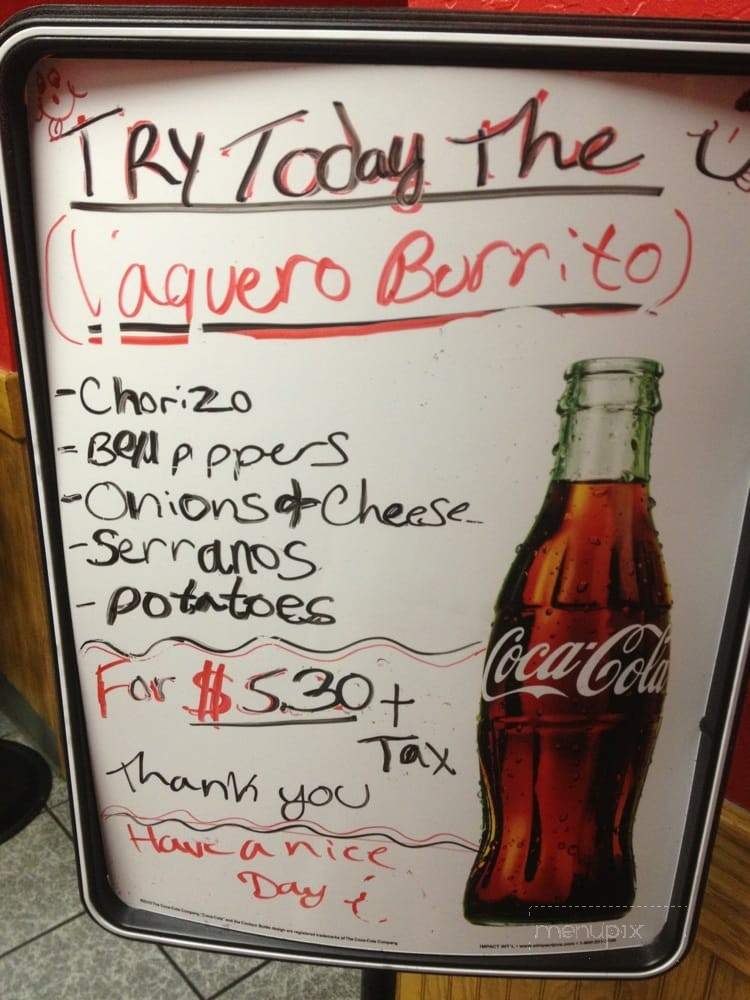 TRY Today The
(Vaquero Burrito)
-Chorizo
-Bell pppers
-Onions & Cheese
-Serranos
-potatoes
For $5.30 +
Tax
Thank you
Have a nice
Day
Coca-Cola
menupix